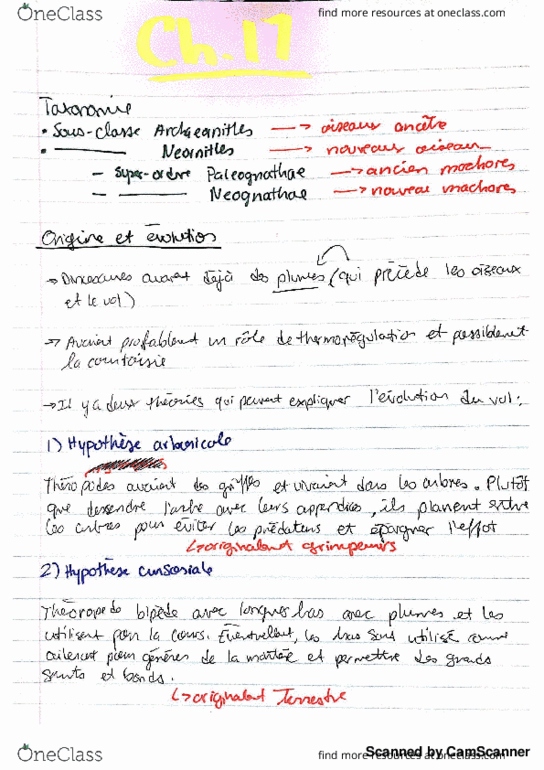 OneClass
find more resources at oneclass.com
Ch.17
Taxonomie
• Sous-classe Archaeornithes → oiseaux ancêtre
• ——— Neornithes → nouveaux oiseaux
- Super-ordre Paleognathae → ancien machores
- ——— Neognathae → nouveau machores
Origine et évolution
→ Dinosaures avaient déjà des plumes (qui précède les oiseaux
et le vol)
→ Avaient probablement un rôle de thermorégulation et possiblement
la courtoisie
→ Il y a deux théories qui peuvent expliquer l'évolution du vol:
1) Hypothèse arboricole
Théropodes avaient des griffes et vivaient dans les arbres. Plutôt
que descendre l'arbre avec leurs appendices, ils planent entre
les arbres pour éviter les prédateurs et épargner l'effort
↳ originalement grimpeurs
2) Hypothèse cursoriale
Théropode bipède avec longues bras avec plumes et les
utilisent pour la course. Éventuellement, les bras sont utilisé comme
pour générer de la et permettre des grands
sauts et bonds.
↳ originalement Terrestre
OneClass
find more resources at oneclass.com
Scanned by CamScanner